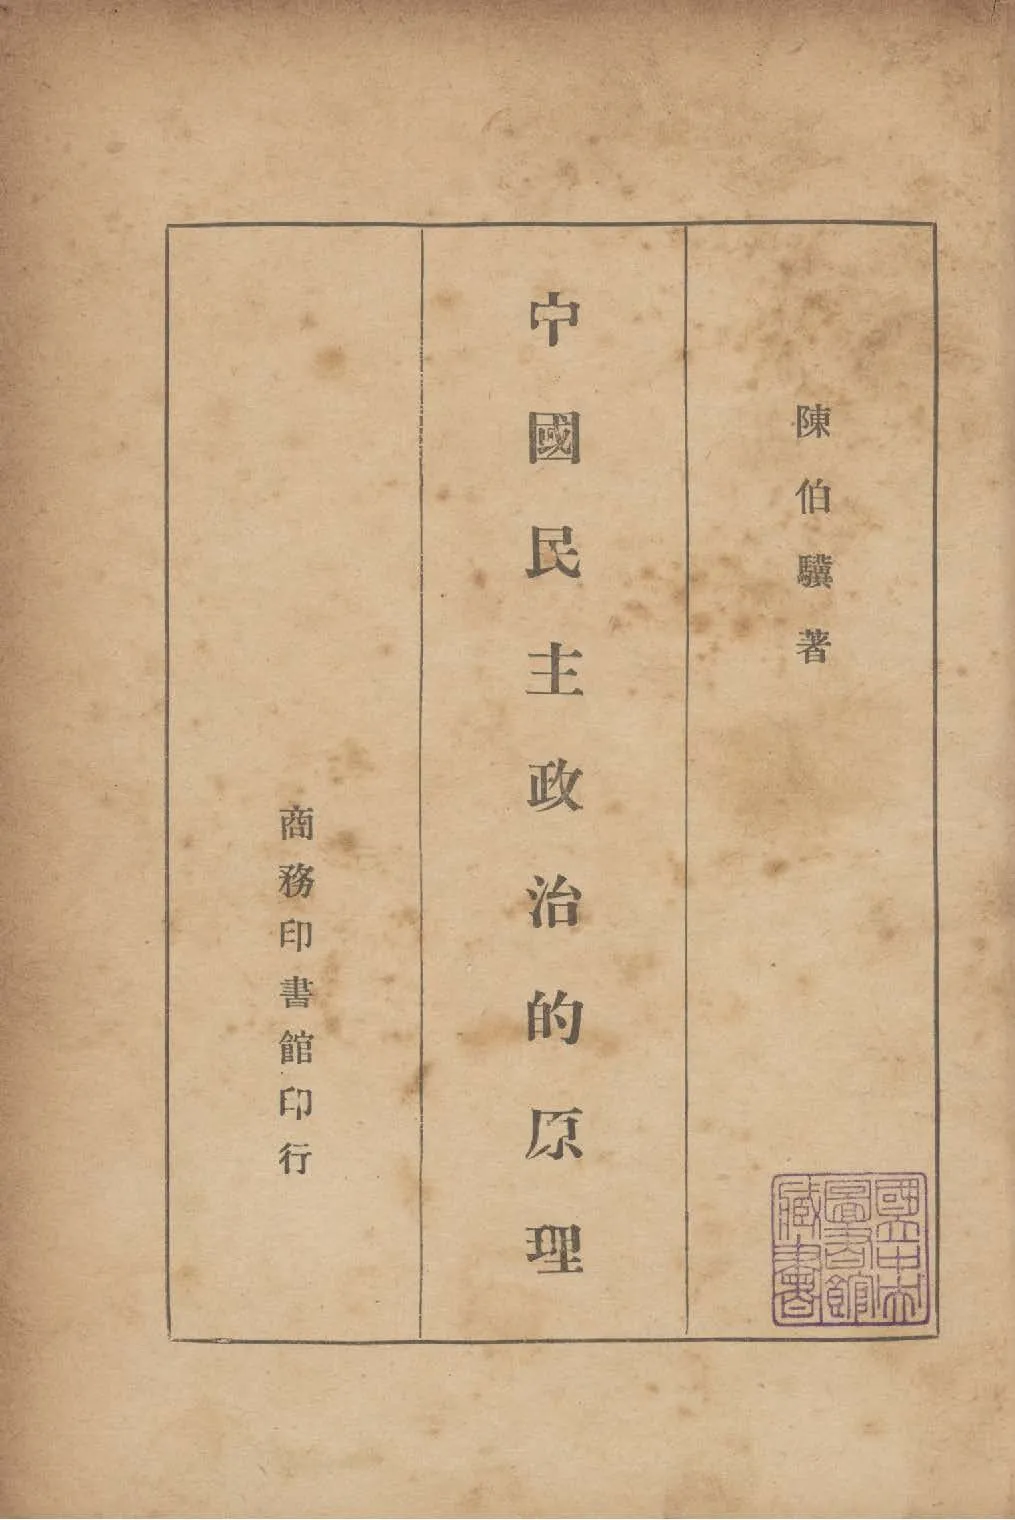 陳伯驥著
中國民主政治的原理
商務印書館印行
國立中央
圖書館
藏書